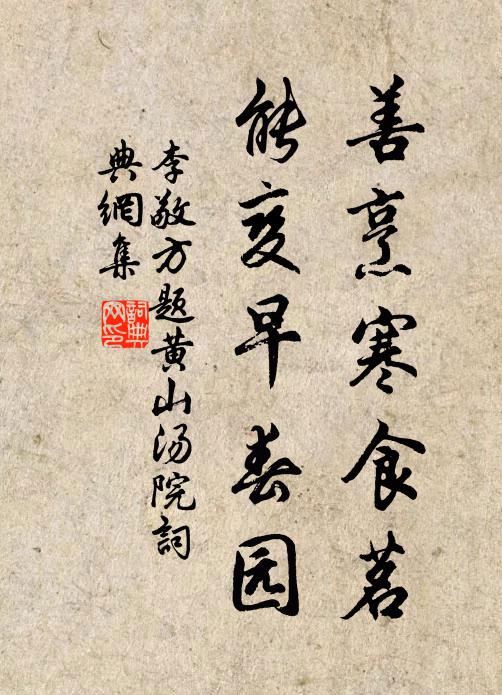 善烹寒食茗
能变早春园
李敬方题黄山汤院詞
典網集
詞典网印